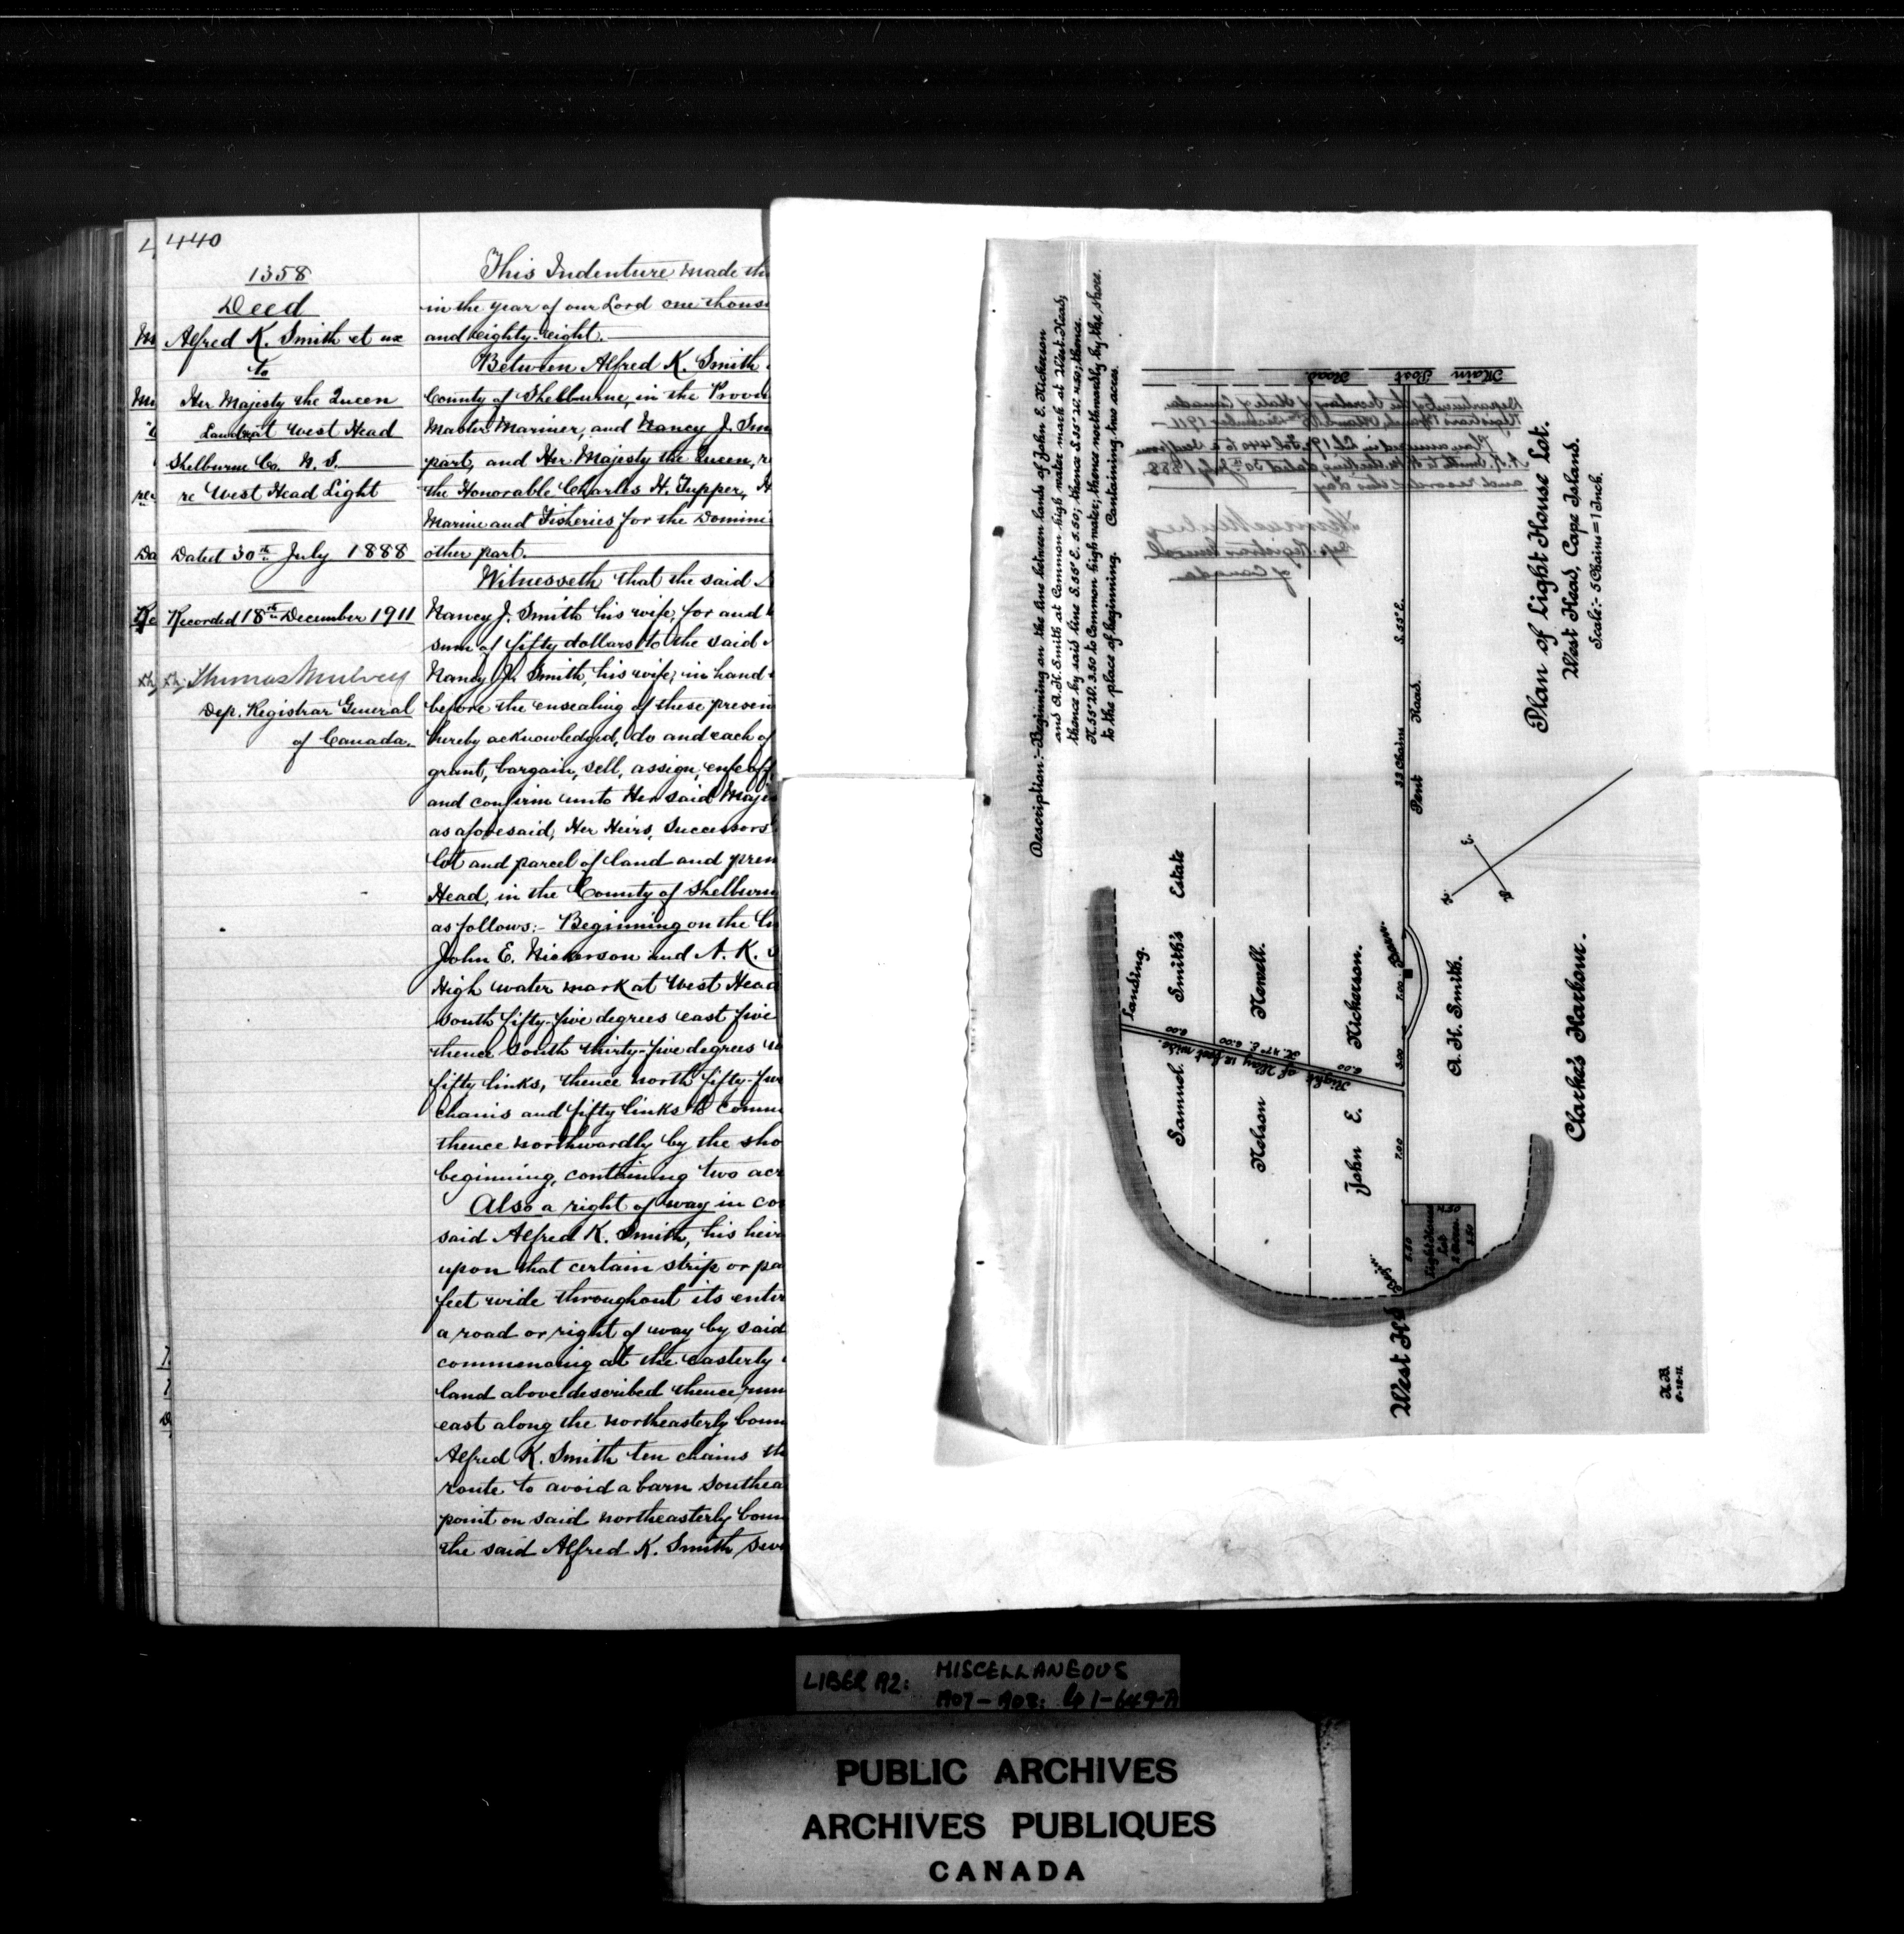 440
1358
Deed
Alfred K. Smith et ux
to
Her Majesty the Queen
Land at West Head
Shelburne Co. N. S.
re West Head Light
Dated 30th July 1888
Recorded 18th December 1911
Thomas Mulvey
Dep. Registrar General
of Canada.
This Indenture made th
in the year of our Lord one thous
and eighty-eight.
Between Alfred K. Smith
County of Shelburne, in the Provi
Master Mariner, and Nancy J. Sm
part, and Her Majesty the Queen, r
the Honorable Charles H. Tupper, H
Marine and Fisheries for the Domini
other part.
Witnesseth that the said
Nancy J. Smith his wife, for and
sum of fifty dollars to the said
Nancy J. Smith, his wife, in hand
before the ensealing of these presen
hereby acknowledged, do and each of
grant, bargain, sell, assign, enfeoff,
and confirm unto Her said Majes
as aforesaid, Her Heirs, Successors
lot and parcel of land and prem
Head, in the County of Shelburn
as follows:- Beginning on the li
John E. Nickerson and A. K.
High water mark at West Head
south fifty-five degrees east five
thence South thirty-five degrees w
fifty links, thence north fifty-five
chains and fifty links to comm
thence northwardly by the sho
beginning, containing two acr
Also a right of way in co
said Alfred K. Smith, his heir
upon that certain strip or pa
feet wide throughout its entir
a road or right of way by said
commencing at the easterly
land above described thence runn
east along the northeasterly boun
Alfred K. Smith ten chains th
route to avoid a barn southea
point on said northeasterly boun
the said Alfred K. Smith, seve
Description:- Beginning on the line between lands of John E. Nickerson
and A. H. Smith at Common high water mark at West Head;
thence by said line S.55° E. 5.50; thence S.35° W. 4.50; thence
N.55° W. 3.50 to Common high water; thence northwardly by the shore
to the place of beginning. Containing two acres.
Main Post Road
Department of the Secretary of State of Canada
Registrar's Branch 18th December 1911 -
Plan annexed in Lib. 19, Fol 440 to a Deed from
A. K. Smith to H. M. the King dated 30th July 1888
and recorded this day
Thomas Mulvey
Dep. Registrar General
of Canada
Plan of Light House Lot.
West Head, Cape Island.
Scale:- 5 Chains = 1 Inch.
S. 55° E.
33 Chains
Pent Road.
Landing.
Samuel Smith's Estate
Nelson Newell.
John E. Nickerson.
Right of Way 12 feet wide.
N. 47° E. 6.00
6.00
Barn.
7.00
3.00
7.00
A. H. Smith.
Clarke's Harbour.
Light House
Lot
2 Acres.
5.50
4.50
3.50
Begin.
West Hd
H.B.
LIBER A2: MISCELLANEOUS
A07-A08: 41-649-A
PUBLIC ARCHIVES
ARCHIVES PUBLIQUES
CANADA